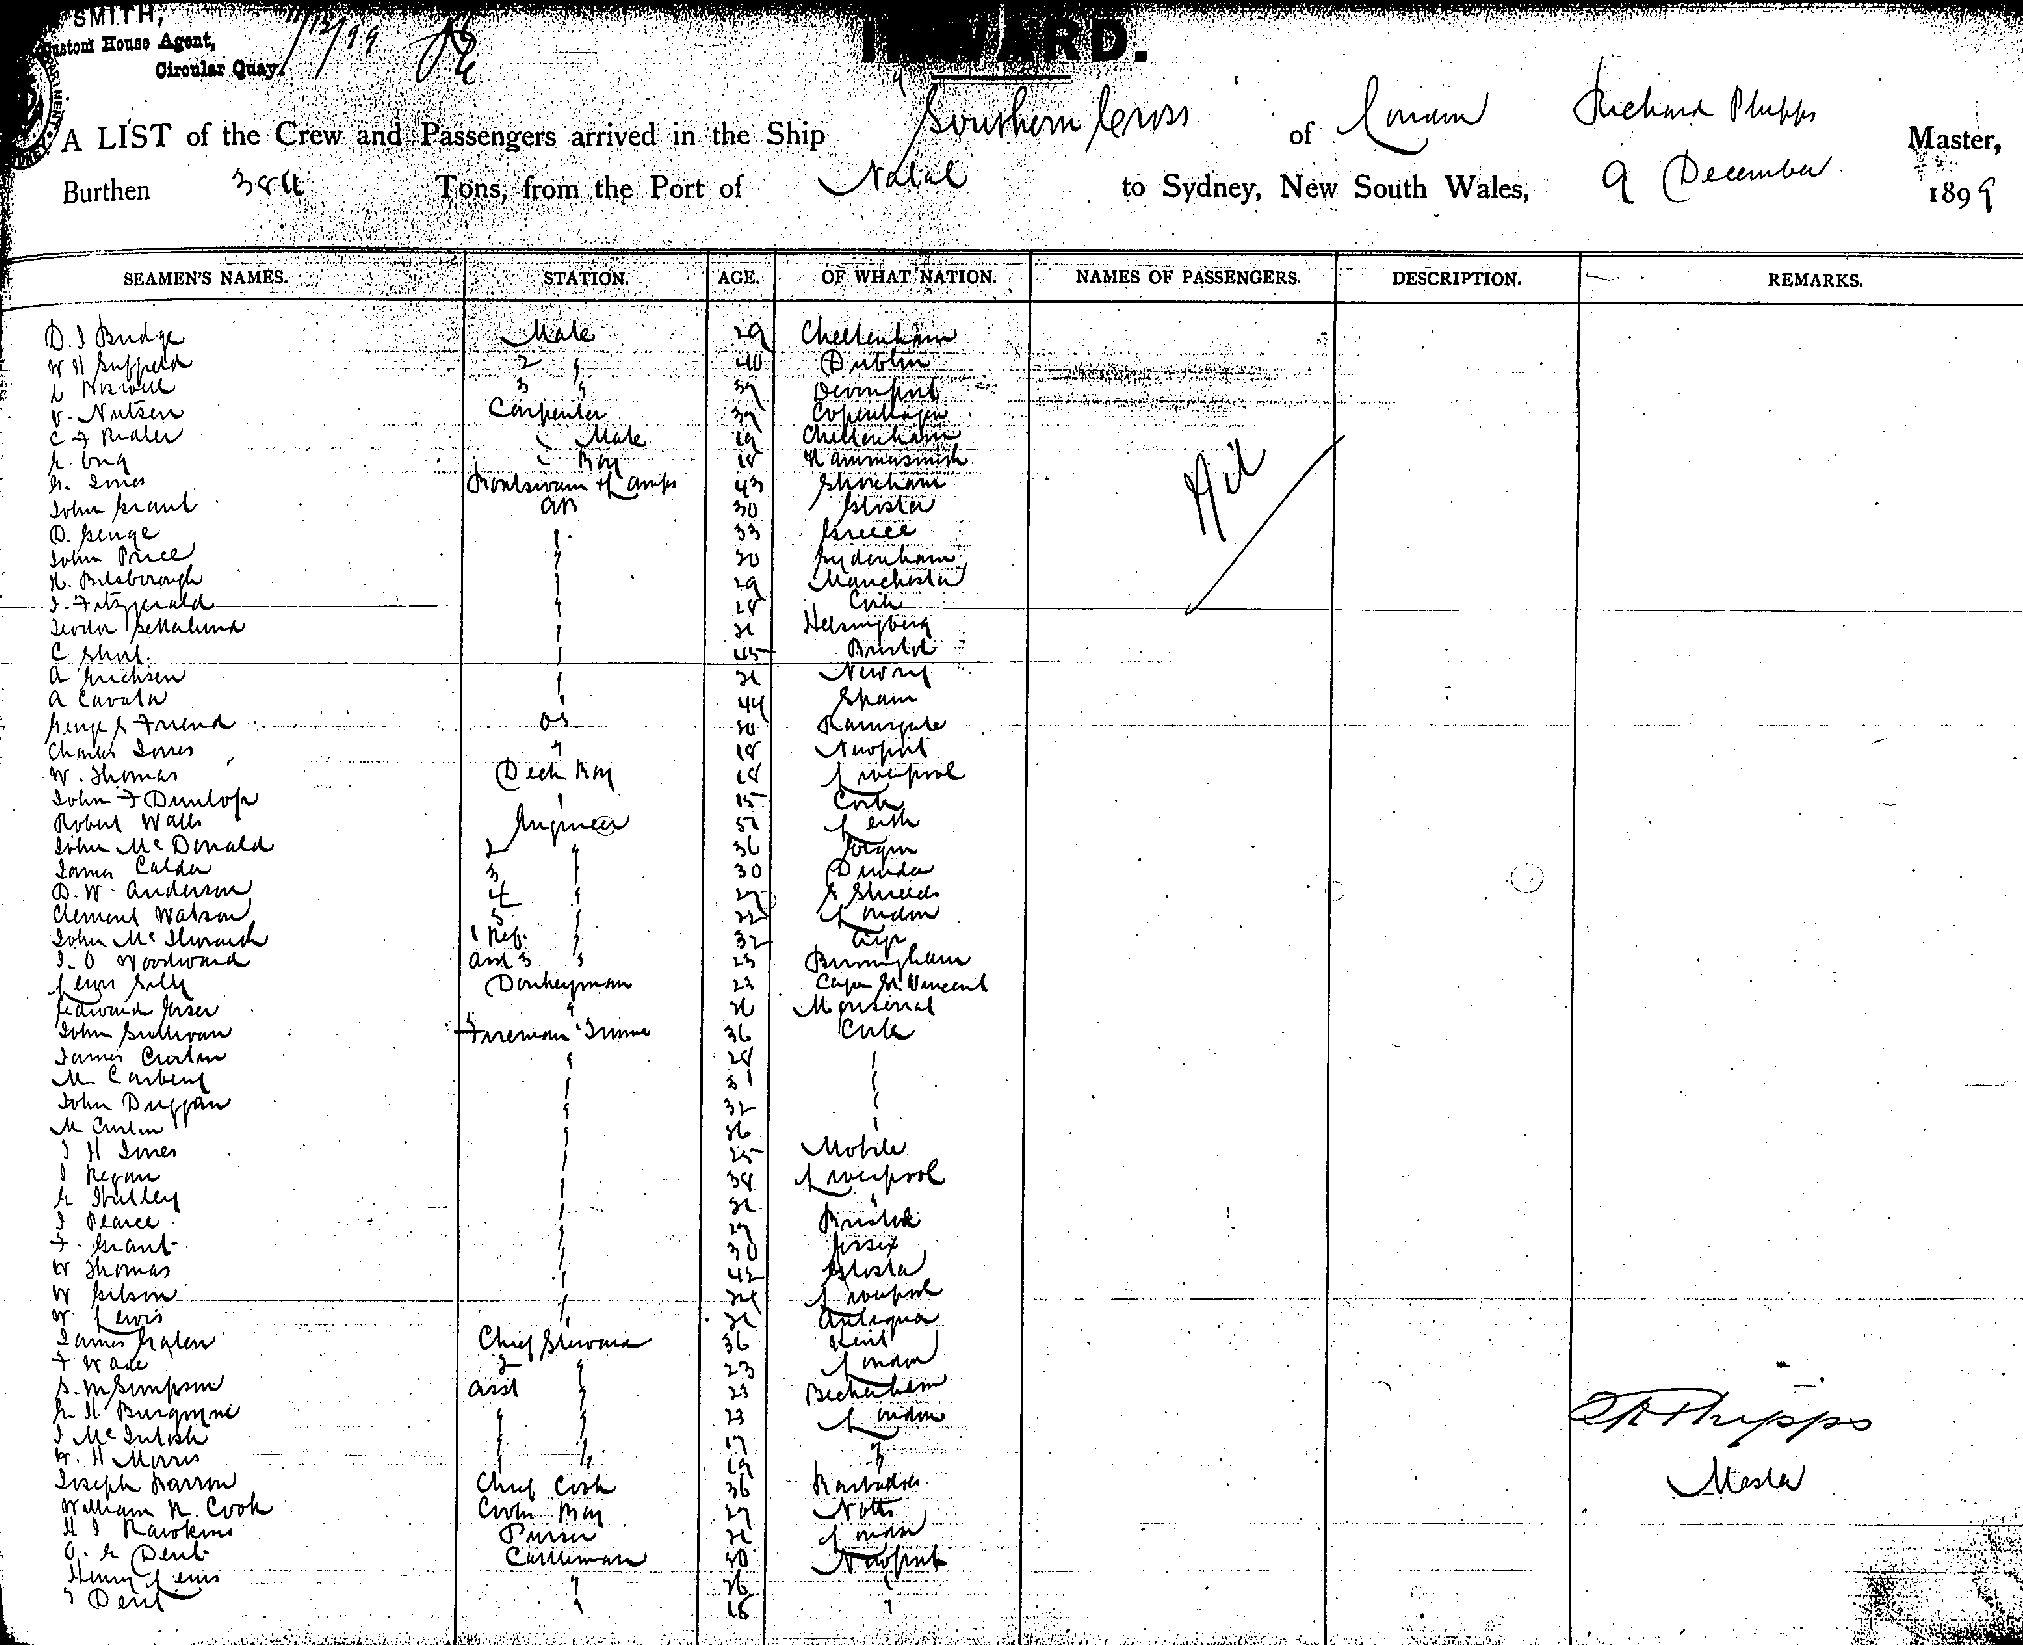 SMITH,
Custom House Agent,
Circular Quay.
/12/99
INWARD.
A LIST of the Crew and Passengers arrived in the Ship Southern Cross of London Richard Phipps Master,
Burthen Tons, from the Port of Natal to Sydney, New South Wales, 9 December 1899
SEAMEN'S NAMES. STATION. AGE. OF WHAT NATION. NAMES OF PASSENGERS. DESCRIPTION. REMARKS.
Mate 29 Cheltenham
2 " 40 Dublin
3 " 37 Devonport
Nutsen Carpenter 37 Copenhagen
C F Ridler " Mate 19 Cheltenham
" Boy 18 Hammersmith
G. Jones Boatswain & Lamps 43 Shoreham
John Grant AB 30 Gloster
D. George " 33 Greece
John Price " 20 Sydenham
H. Bilsborough " 29 Manchester
J. Fitzgerald " 28 Cork
" 21 Helsingborg
C Short " 45 Bristol
A Erichsen " 21 Newry
A Cavala " 44 Spain
George Friend OS 20 Ramsgate
Charles Jones " 18 Newport
W. Thomas Deck Boy 18 Liverpool
John F Dunlop " 15 Cork
Robert Walls Engineer Leith
John McDonald 2 " 36
James Calder 3 " 30 Dundee
D. W. Anderson 4 " 27 S Shields
Clement Watson 5 " 22 London
John 1 Ref. " 32 Ayr
J. O Woodward Asst 3 " 23 Birmingham
Donkeyman 22 Cape St Vincent
Edward " Montserrat
John Sullivan Fireman Trimmer 36 Cork
James Curtin " 28 "
M. Carbery " 31 "
John Duggan " 32 "
M Curtin " 26 "
J H Jones " 25 Mobile
J Regan " 38 Liverpool
" 21 "
J Pearce " 27 Bristol
F. Grant " 30 Essex
W Thomas " 42 Gloster
W Gibson " 24 Liverpool
W Lewis " 21 Antigua
James Chief Steward 36 Kent
F Wade 2 " 23 London
S. M Simpson Asst " 23 Beckenham
G H Burgoyne " " 23 London
J McIntosh " " 17 "
W. H Morris " " 19 "
Joseph Barrow Chief Cook 36 Barbados
William R. Cook Cooks Boy 27 Notts
H J Hawkins Purser 21 London
Dent Cattleman 20 Newport
Henry Lewis " 26 "
J Dent " 18 "
Nil
R Phipps
Master